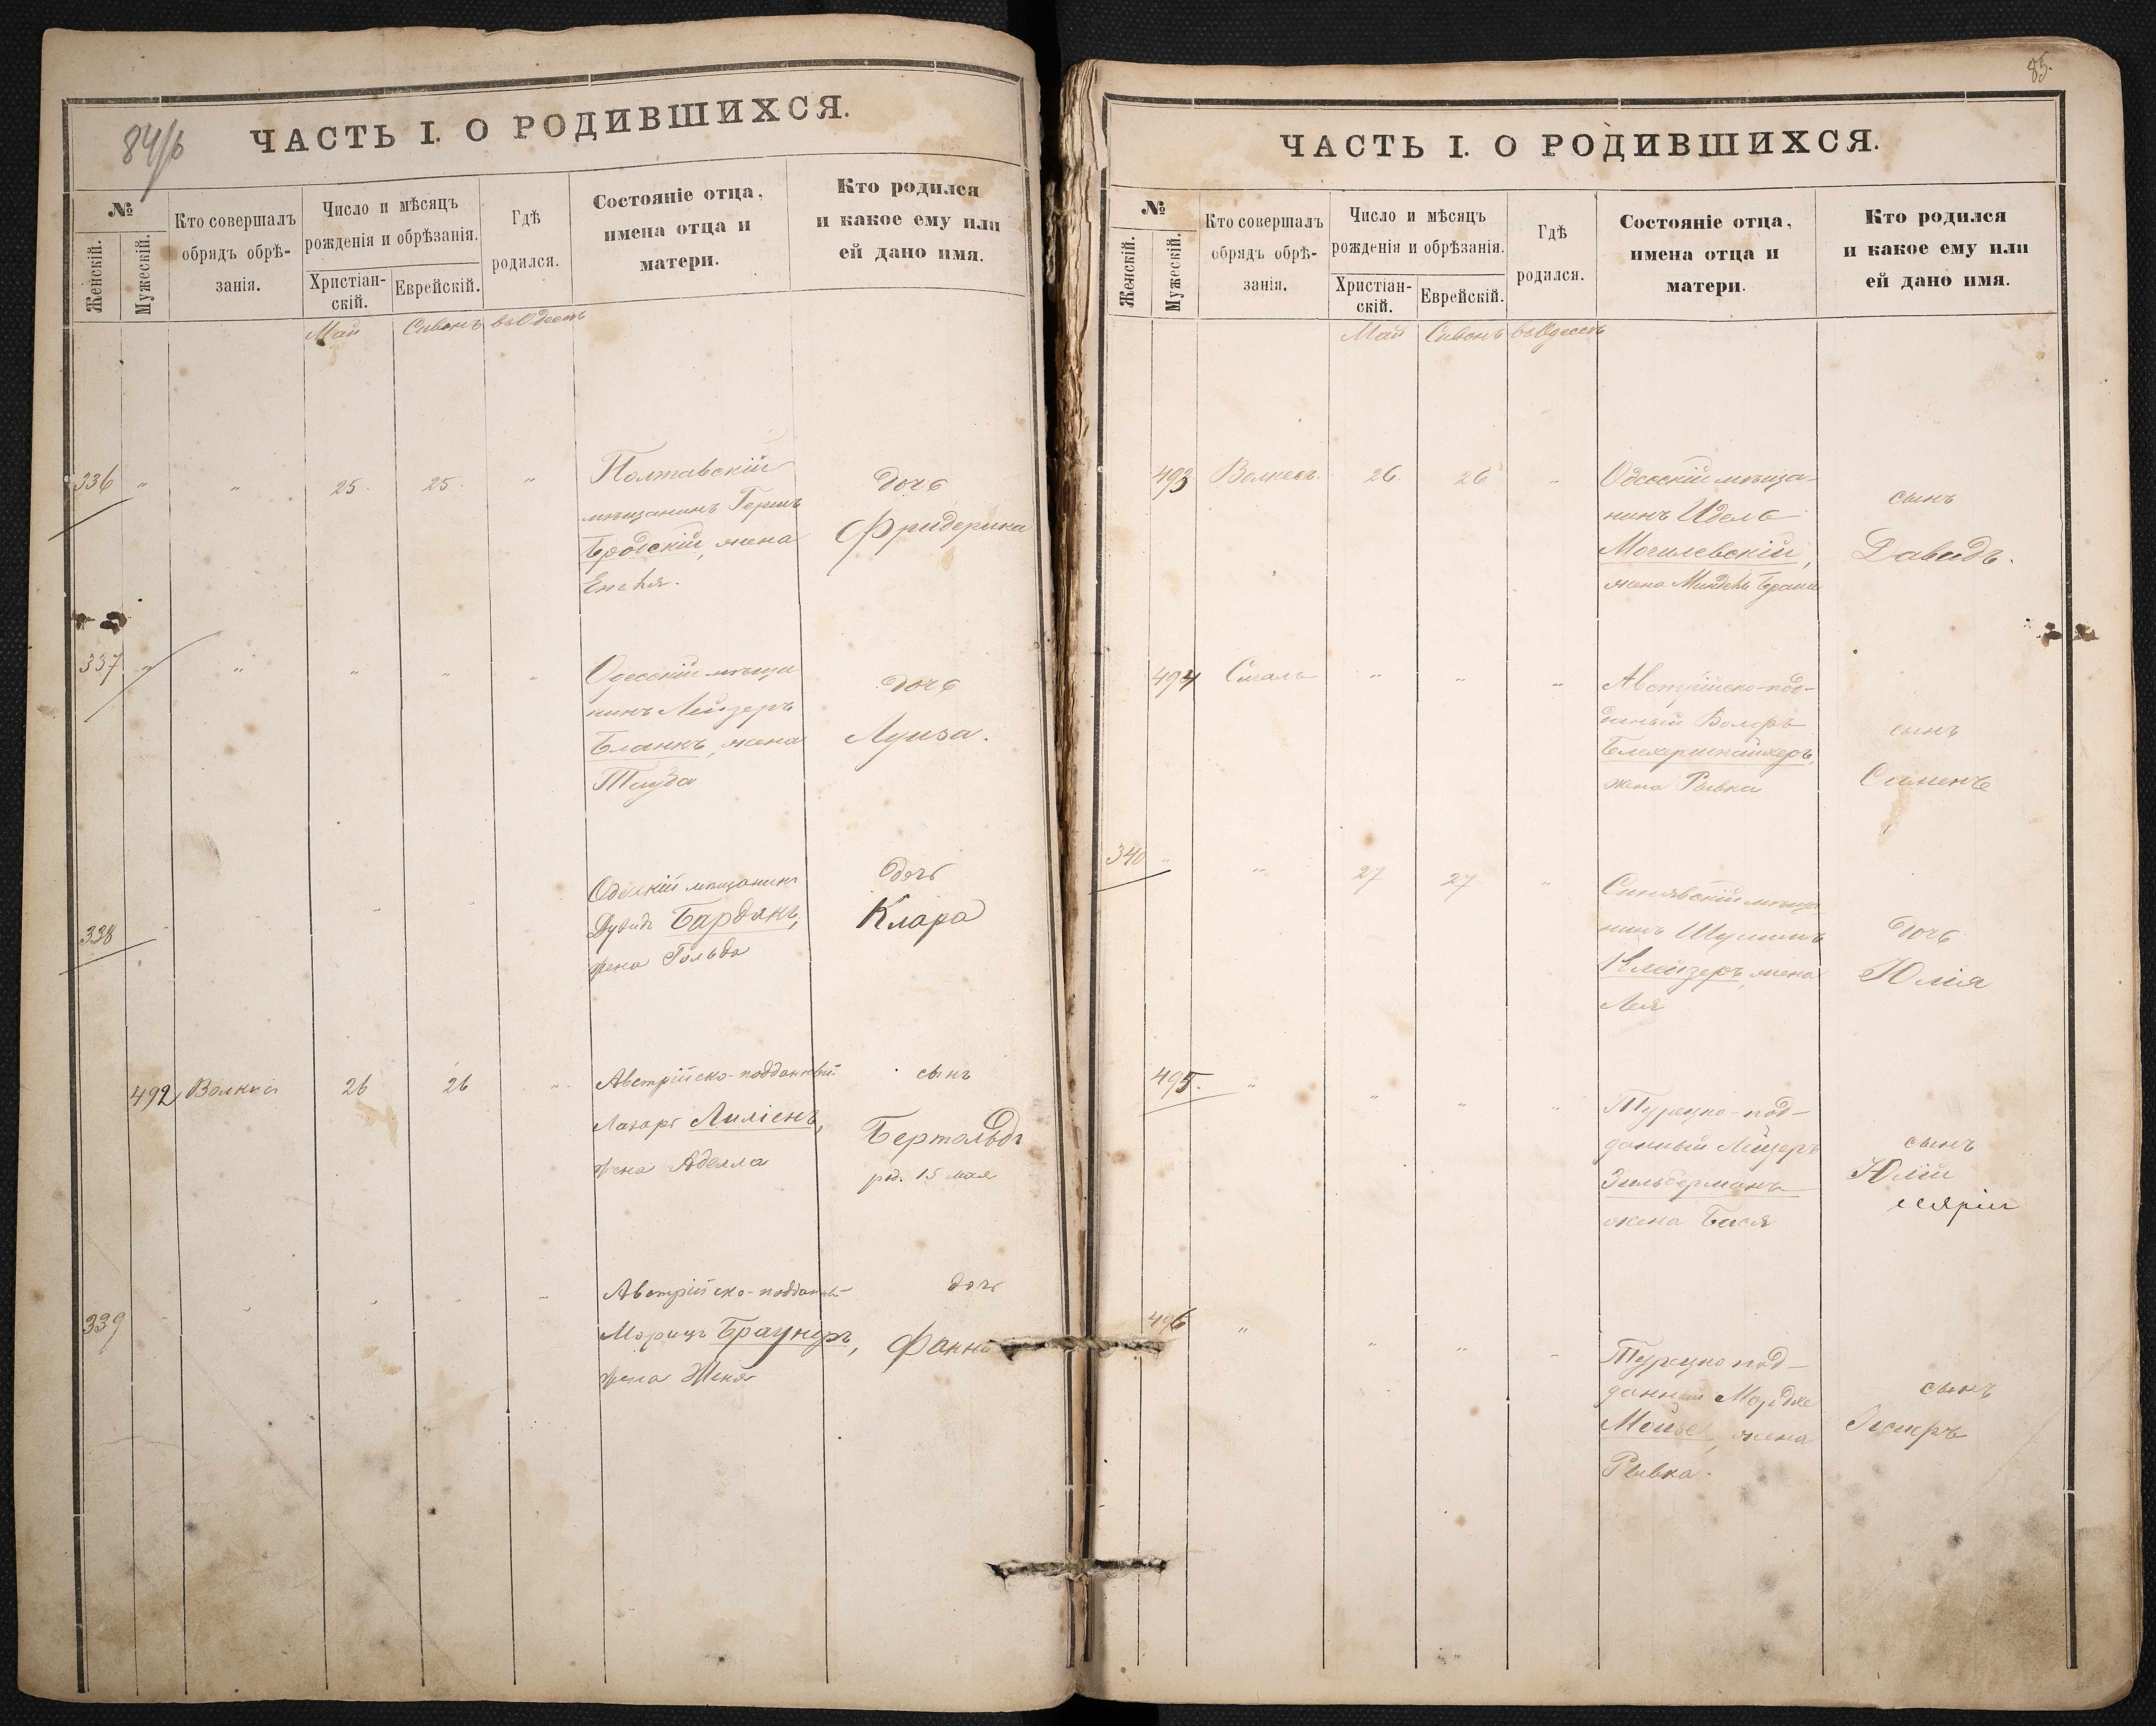 84/б
ЧАСТЬ I. О РОДИВШИХСЯ.
№
Женскій.
Мужескій.
Кто совершалъ
обрядъ обрѣ-
занія.
Число и мѣсяцъ
рожденія и обрѣзанія.
Христіан-
скій.
Еврейскій.
Гдѣ
родился.
Состояніе отца,
имена отца и
матери.
Кто родился
и какое ему или
ей дано имя.
Май Сивонъ въ Одессѣ
336 " " 25 25 "
Полтавскій
мѣщанинъ Гершъ
Бродскій, жена
дочь
Фридерика
337 " " " " "
Одесскій мѣща
нинъ Лейзеръ
Бланкъ, жена
Тауба
дочь
Луиза.
338
Одесскій мѣщанинъ
Дувидъ Бардякъ,
жена Гольда
дочь
Клара
492 Волкис 26 26 "
Австрійско-подданный
Лазарь Лиліенъ,
жена Аделла
сынъ
Бертольдъ
род. 15 мая
339
Австрійско-подданный
Морицъ Браунеръ,
жена Женя
дочь
Фанни
85.
ЧАСТЬ I. О РОДИВШИХСЯ.
№
Женскій.
Мужескій.
Кто совершалъ
обрядъ обрѣ-
занія.
Число и мѣсяцъ
рожденія и обрѣзанія.
Христіан-
скій.
Еврейскій.
Гдѣ
родился.
Состояніе отца,
имена отца и
матери.
Кто родился
и какое ему или
ей дано имя.
Май Сивонъ въ Одессѣ
493 26 26 "
Одесскій мѣща-
нинъ Идель
Могилевскій,
жена
сынъ
Давидъ.
494 Сигалъ " " "
Австрійско-под-
данный Вольфъ
жена Рывка
сынъ
Семенъ
340 " " 27 27 "
Синявскій мѣща
нинъ Шулимъ
Клейзеръ, жена
Лея
дочь
Юлія
495. " " " "
Турецко-под-
данный Лейзеръ
Зильберманъ
жена Бася
сынъ
Юлій
496 " " " "
Турецко под-
данный Мордхе
жена
Рывка.
сынъ